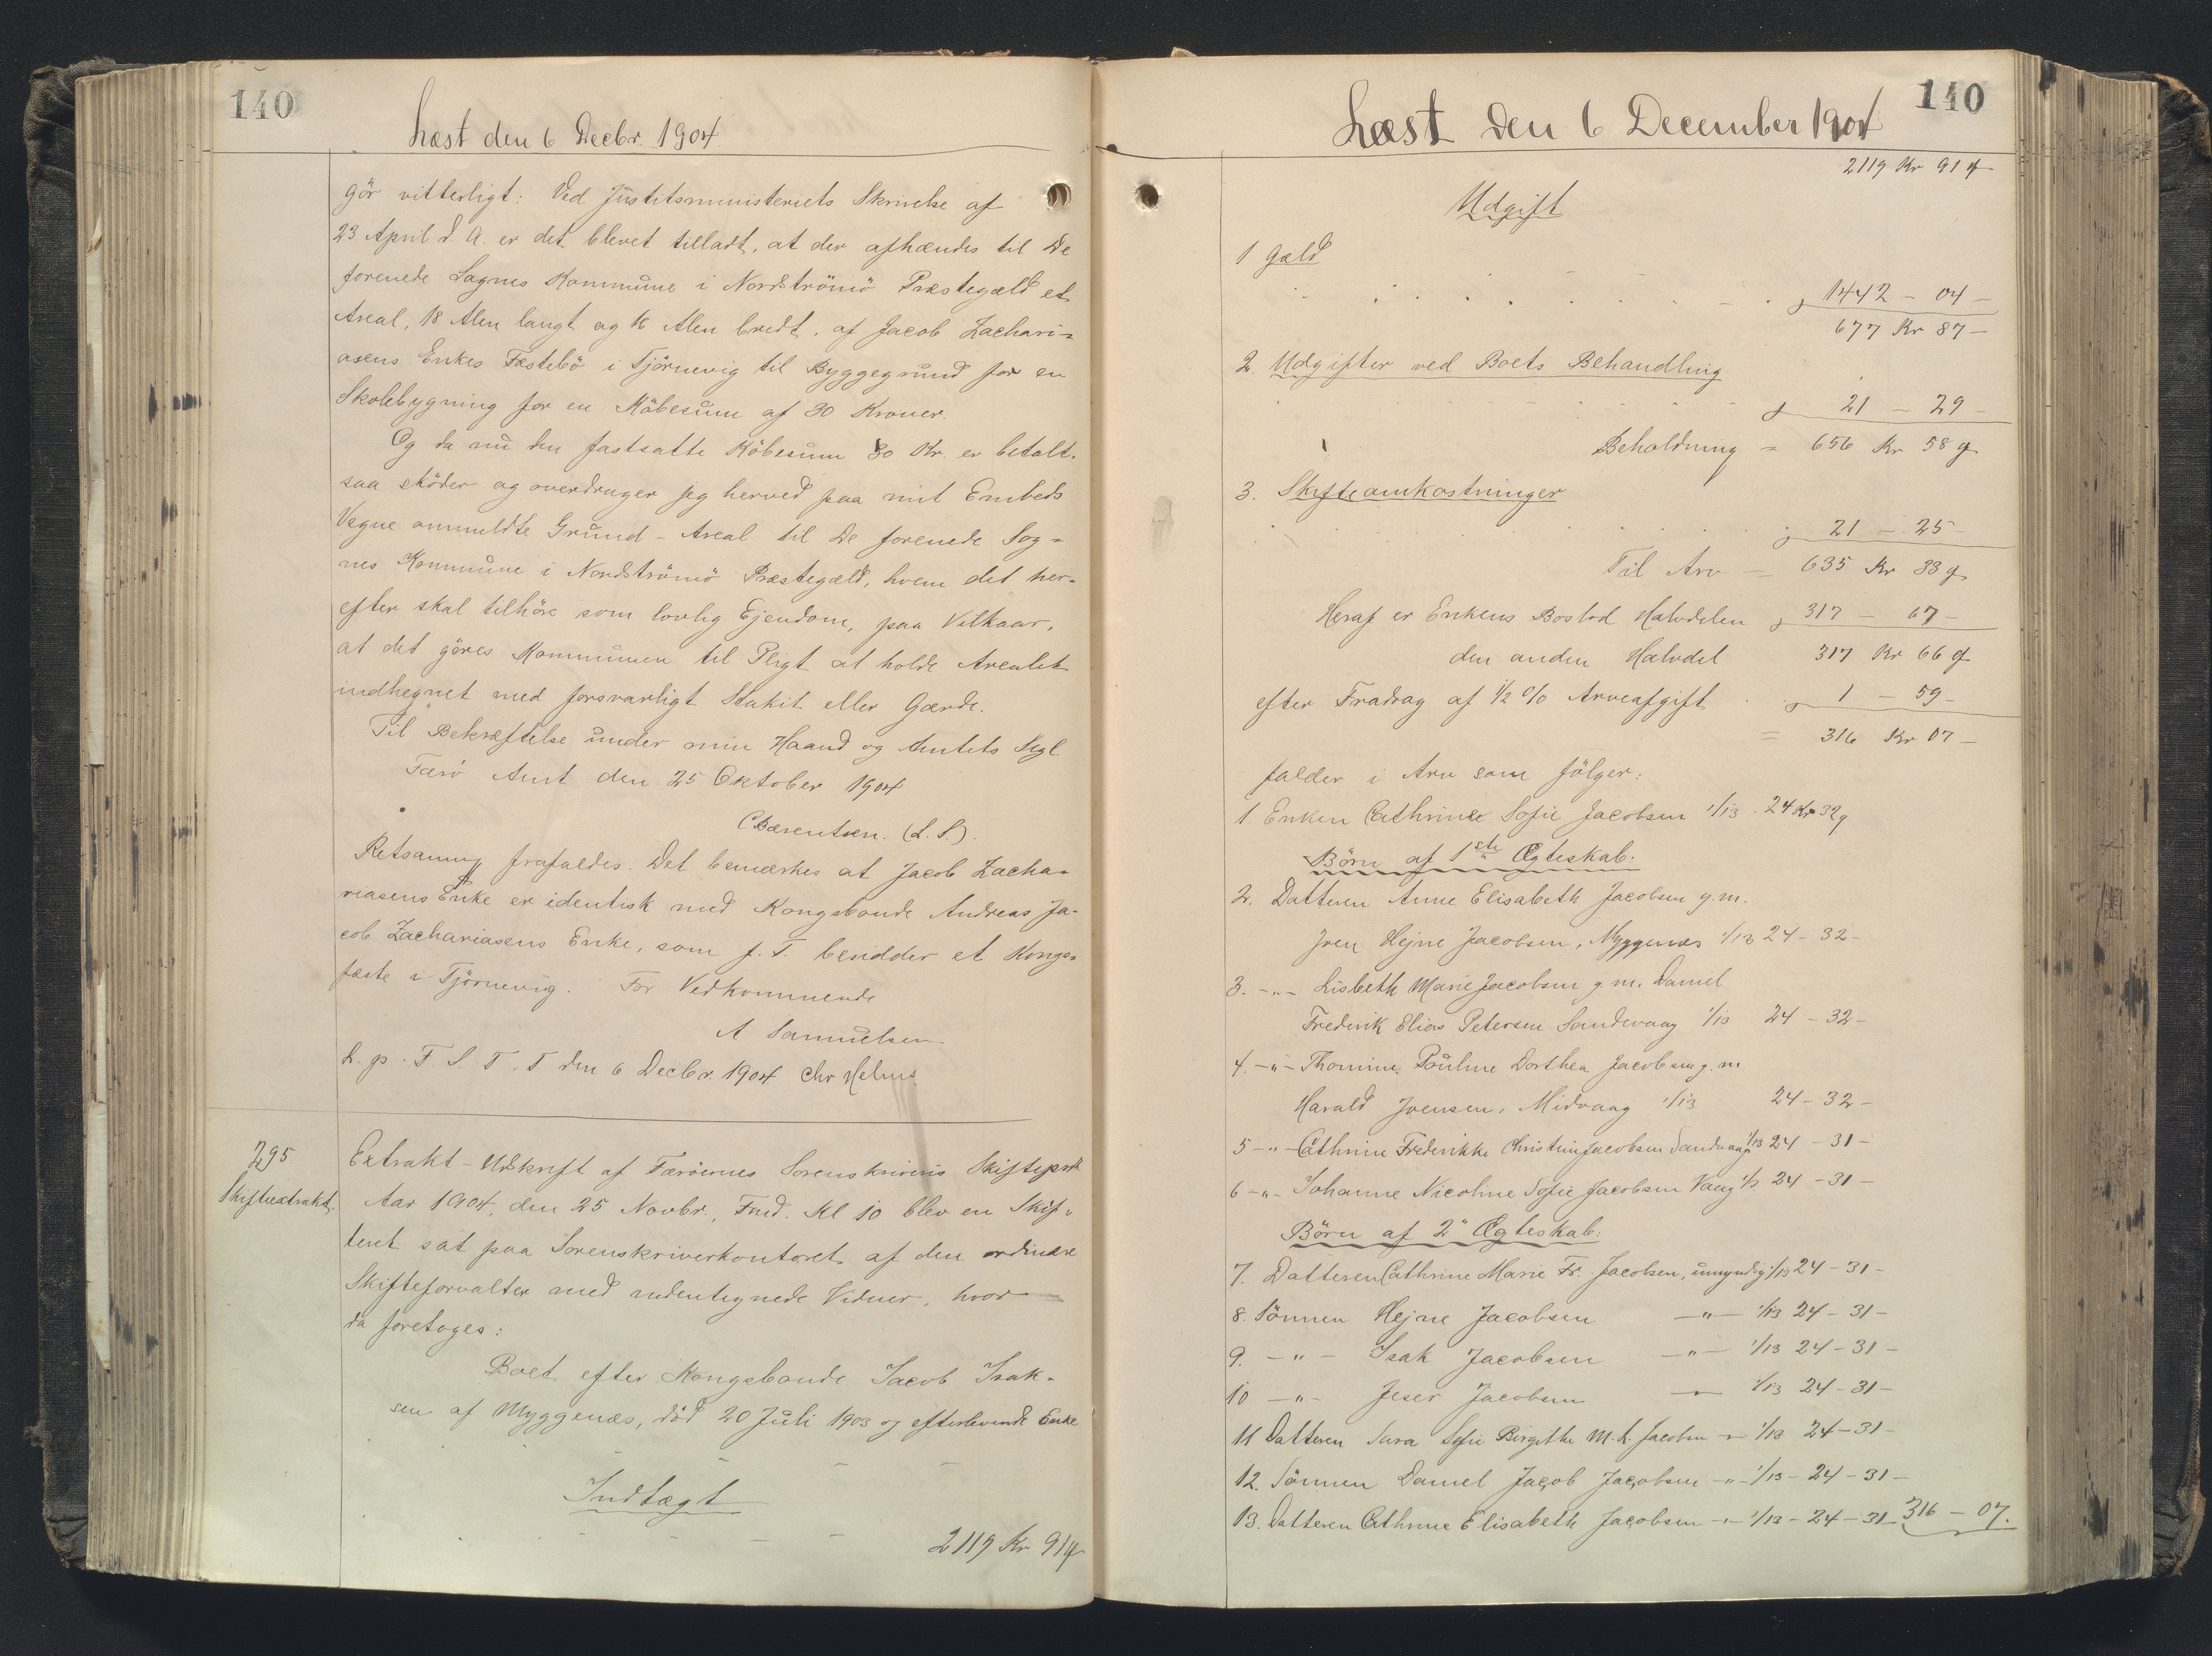 140
Læst den 6 Decbr. 1904.
gör vitterligt: Ved Justitsministeriets Skrivelse af
23 April d. A. er det blevet tilladt, at der afhændes til De
forenede Sognes Kommune i Nordströmö Præstegæld et
Areal, 18 Alen langt og 16 Alen bredt, af Jacob Zachari=
asens Enkes Fæstebö i Tjörnevig til Byggegrund for en
Skolebygning for en Köbesum af 30 Kroner.
Og da nu den fastsatte Köbesum 30 Kr. er betalt.
saa sköder og overdrager jeg herved paa mit Embeds
Vegne ommeldte Grund-Areal til De forenede Sog=
nes Kommune i Nordströmö Præstegæld, hvem det her=
efter skal tilhöre som lovlig Ejendom, paa Vilkaar,
at det göres Kommunen til Pligt at holde Arealet
indhegnet med forsvarligt Stakit eller Gærde.
Til Bekræftelse under min Haand og Amtets Segl.
Færö Amt den 25 Oktober 1904
C Bærentsen. (L. S).
Retsanmg frafaldes. Det bemærkes at Jacob Zacha=
riasens Enke er identisk med Kongsbonde Andreas Ja-
cob Zachariasens Enke, som f. T. besidder et Konge=
fæste i Tjörnevig. For Vedkommende
A Samuelsen
L. p. F. S. T. T den 6 Decbr. 1904 Chr Helms.
295
Skifteextrakt.
Extrakt-Udskrift af Færöernes Sorenskriveris Skifteprtk
Aar 1904, den 25 Novbr., Fmd. Kl 10 blev en Skif=
teret sat paa Sorenskriverkontoret af den ordinære
Skifteforvalter med undertegnede Vidner, hvor
da foretoges:
Boet efter Kongsbonde Jacob Isak-
sen af Myggenæs, död 20 Juli 1903 og efterlevende Enke
Indtægt
2119 Kr 91 ø
140
Læst den 6 December 1904
2119 Kr 91 ø
Udgift
1 Gæld
1442 - 04 -
677 Kr 87 -
2. Udgifter ved Boets Behandling
21 - 29 -
Beholdning = 656 Kr 58 ø
3. Skifteomkostninger
21 - 25 -
Til Arv = 635 Kr 33 ø
Heraf er Enkens Boslod Halvdelen 317 - 67 -
den anden Halvdel 317 Kr 66 ø
efter Fradrag af 1/2 % Arveafgift 1 - 59 -
= 316 Kr 07 -
falder i Arv som fölger:
1. Enken Cathrine Sofie Jacobsen 1/13 . 24 Kr 32 ø
Börn af 1ste Ægteskab:
2. Datteren Anne Elisabeth Jacobsen g. m.
Joen Hejne Jacobsen, Myggenæs 1/13 24 - 32 -
3. -"- Lisbeth Marie Jacobsen g. m. Daniel
Frederik Elias Petersen Sandevaag 1/13 24 - 32 -
4. -"- Thomine Pouline Dorthea Jacobsen g. m
Harald Joensen, Midvaag 1/13 24 - 32 -
5 -"- Cathrine Frederikke Christine Jacobsen Sandevaag 1/13 24 - 31 -
6 -"- Johanne Nicoline Sofie Jacobsen Vaag 1/13 24 - 31 -
Börn af 2" Ægteskab:
7. Datteren Cathrine Marie Fr. Jacobsen, umyndig 1/13 24 - 31 -
8. Sönnen Hejne Jacobsen -"- 1/13 24 - 31 -
9. -"- Isak Jacobsen -"- 1/13 24 - 31 -
10 -"- Jeser Jacobsen -"- 1/13 24 - 31 -
11 Datteren Sara Sofie Birgithe M. L. Jacobsen -"- 1/13 24 - 31 -
12. Sönnen Daniel Jacob Jacobsen -"- 1/13 - 24 - 31 -
13. Datteren Cathrine Elisabeth Jacobsen -"- 1/13 - 24 - 31 - 316 - 07.